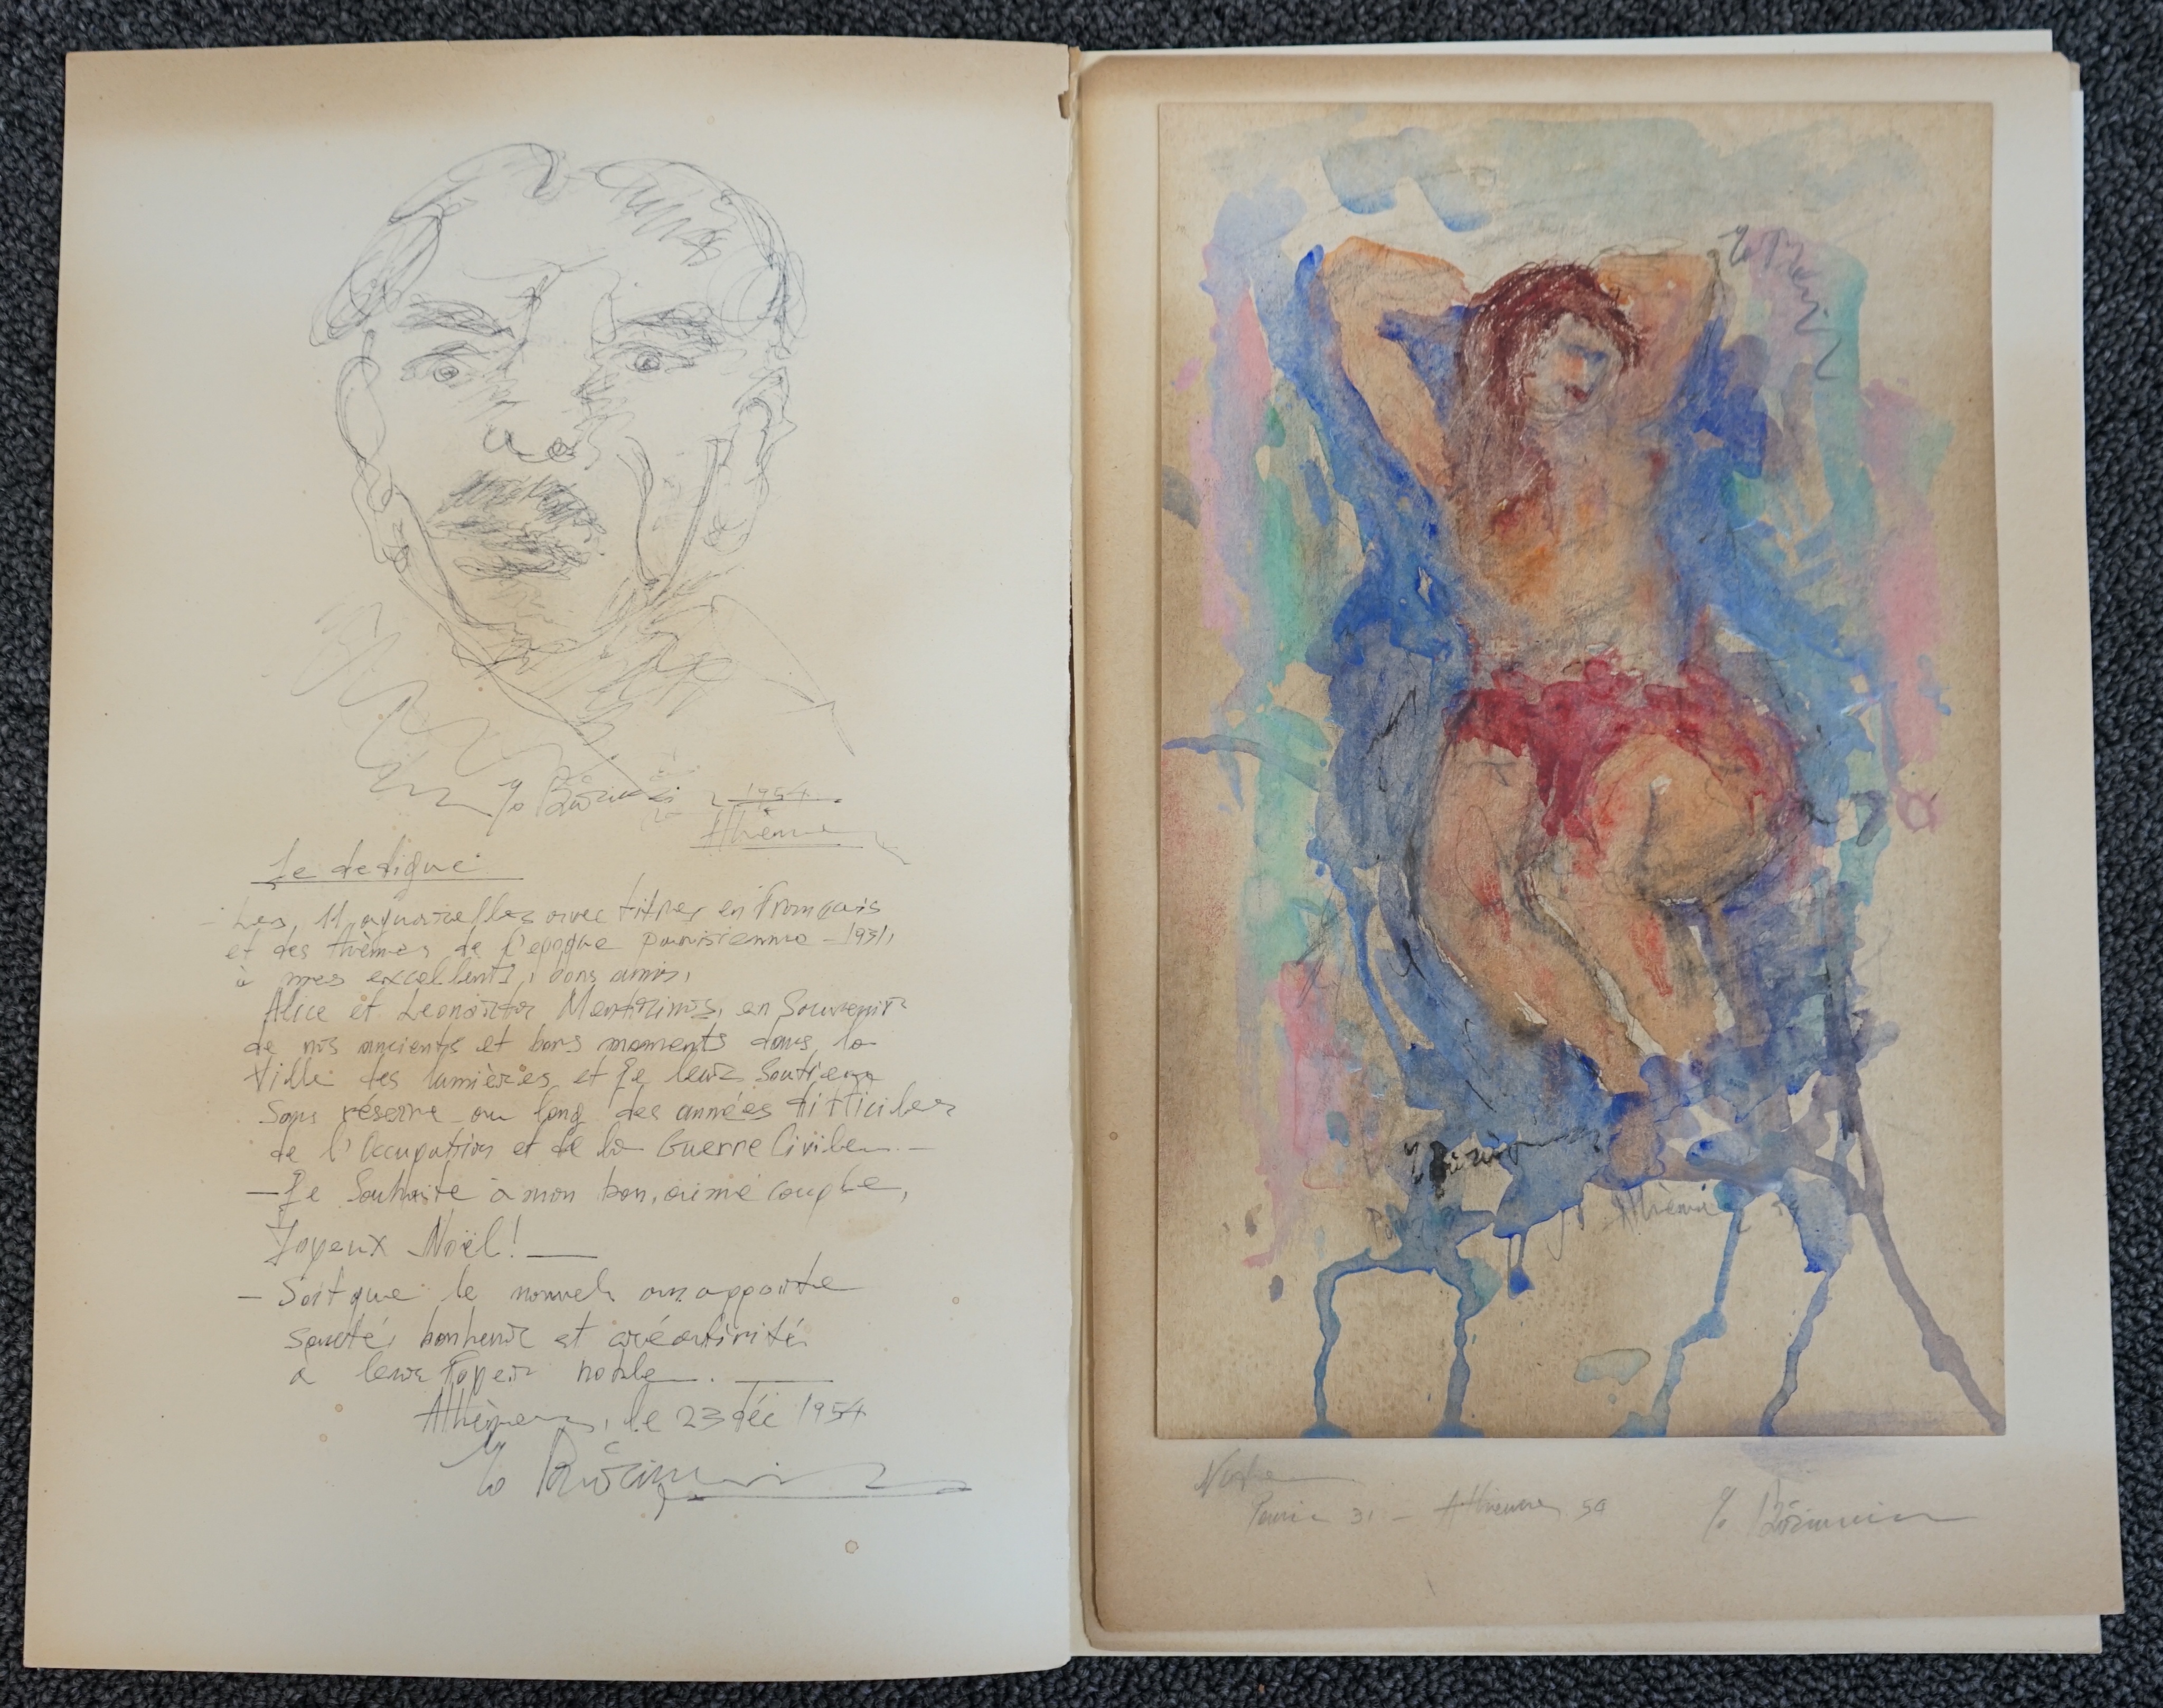 1954
Athènes
Je dedique
- Les 11 aquarelles avec titres en Français
et des thèmes de l'epoque parisienne - 1931,
à mes excellents, bons amis,
Alice et Leonard, en Souvenir
de nos ancients et bons moments dans la
Ville des lumières et de leur Soutien
Sans réserve au long des années difficiles
de l'Occupation et de la Guerre Civile. -
- Je Souhaite à mon bon, aimé couple,
Joyeux Noël!
- Soit que le nouvel an apporte
santé, bonheur et créativité
à leur Foyer noble.
Athènes, le 23 déc 1954
Athènes
Paris 31 - Athènes 54